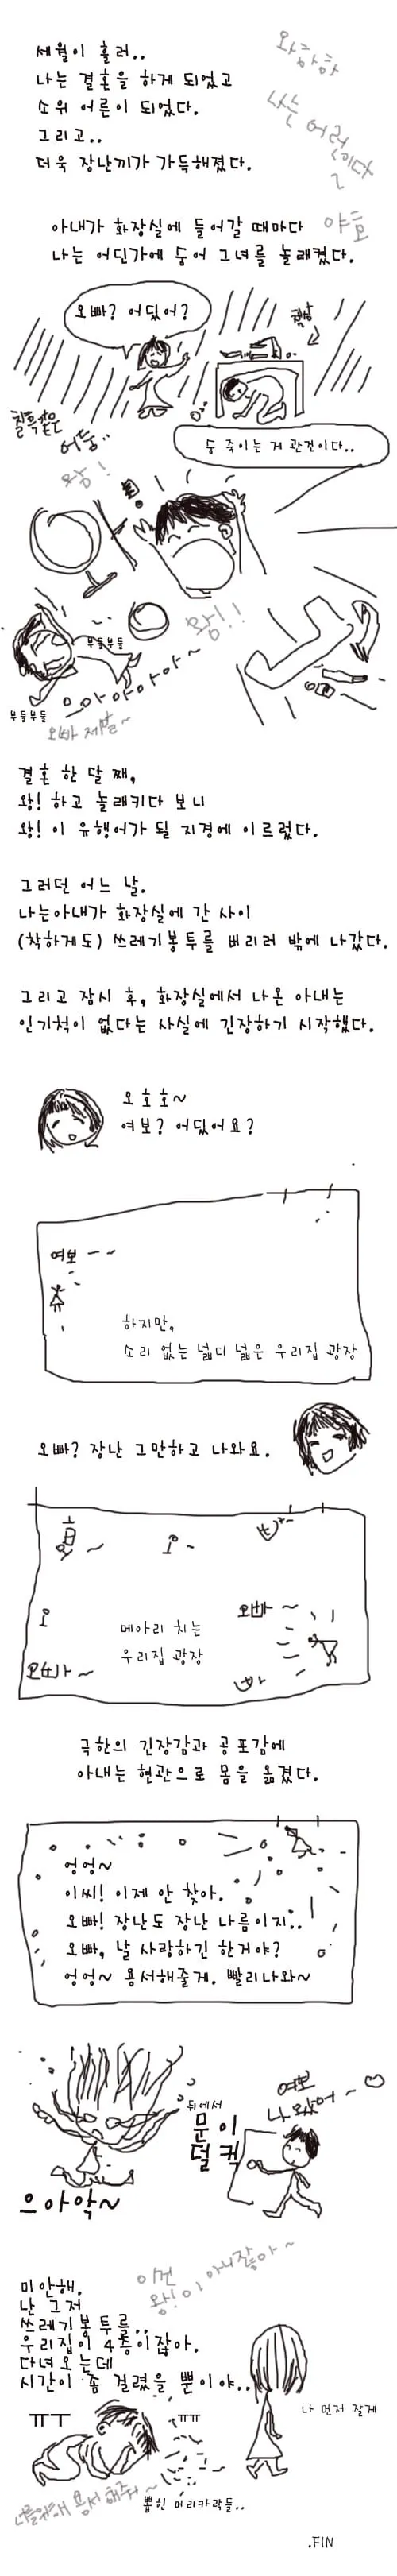 세월이 흘러..
나는 결혼을 하게 되었고
소위 어른이 되었다.
그리고..
더욱 장난끼가 가득해졌다.
와하하
나는 어른이다
아내가 화장실에 들어갈 때마다
나는 어딘가에 숨어 그녀를 놀래켰다.
야호
오빠? 어딨어?
책상
칠흑같은
어둠..
숨 죽이는 게 관건이다..
왕!
왕!!
부들부들
으아아아아~
부들부들
오빠 제발~
결혼 한 달 째,
왕! 하고 놀래키다 보니
왕! 이 유행어가 될 지경에 이르렀다.
그러던 어느 날.
나는아내가 화장실에 간 사이
(착하게도) 쓰레기봉투를 버리러 밖에 나갔다.
그리고 잠시 후, 화장실에서 나온 아내는
인기척이 없다는 사실에 긴장하기 시작했다.
오호호~
여보? 어딨어요?
여보 ~~
하지만,
소리 없는 넓디 넓은 우리집 광장
오빠? 장난 그만하고 나와요.
오~
빠~
오
오빠~
메아리 치는
우리집 광장
오빠~
빠~
극한의 긴장감과 공포감에
아내는 현관으로 몸을 옮겼다.
엉엉~
이씨! 이제 안 찾아.
오빠! 장난도 장난 나름이지..
오빠, 날 사랑하긴 한거야?
엉엉~ 용서해줄게. 빨리나와~
뒤에서
문이
덜컥
여보
나 왔어~
으아악~
이건
왕!이 아니잖아~
미안해.
난 그저
쓰레기봉투를..
우리집이 4층이잖아.
다녀오는데
시간이 좀 걸렸을 뿐이야..
ㅠㅜ
ㅠㅠ
나 먼저 잘게
용서해줘~
뽑힌 머리카락들..
.FIN